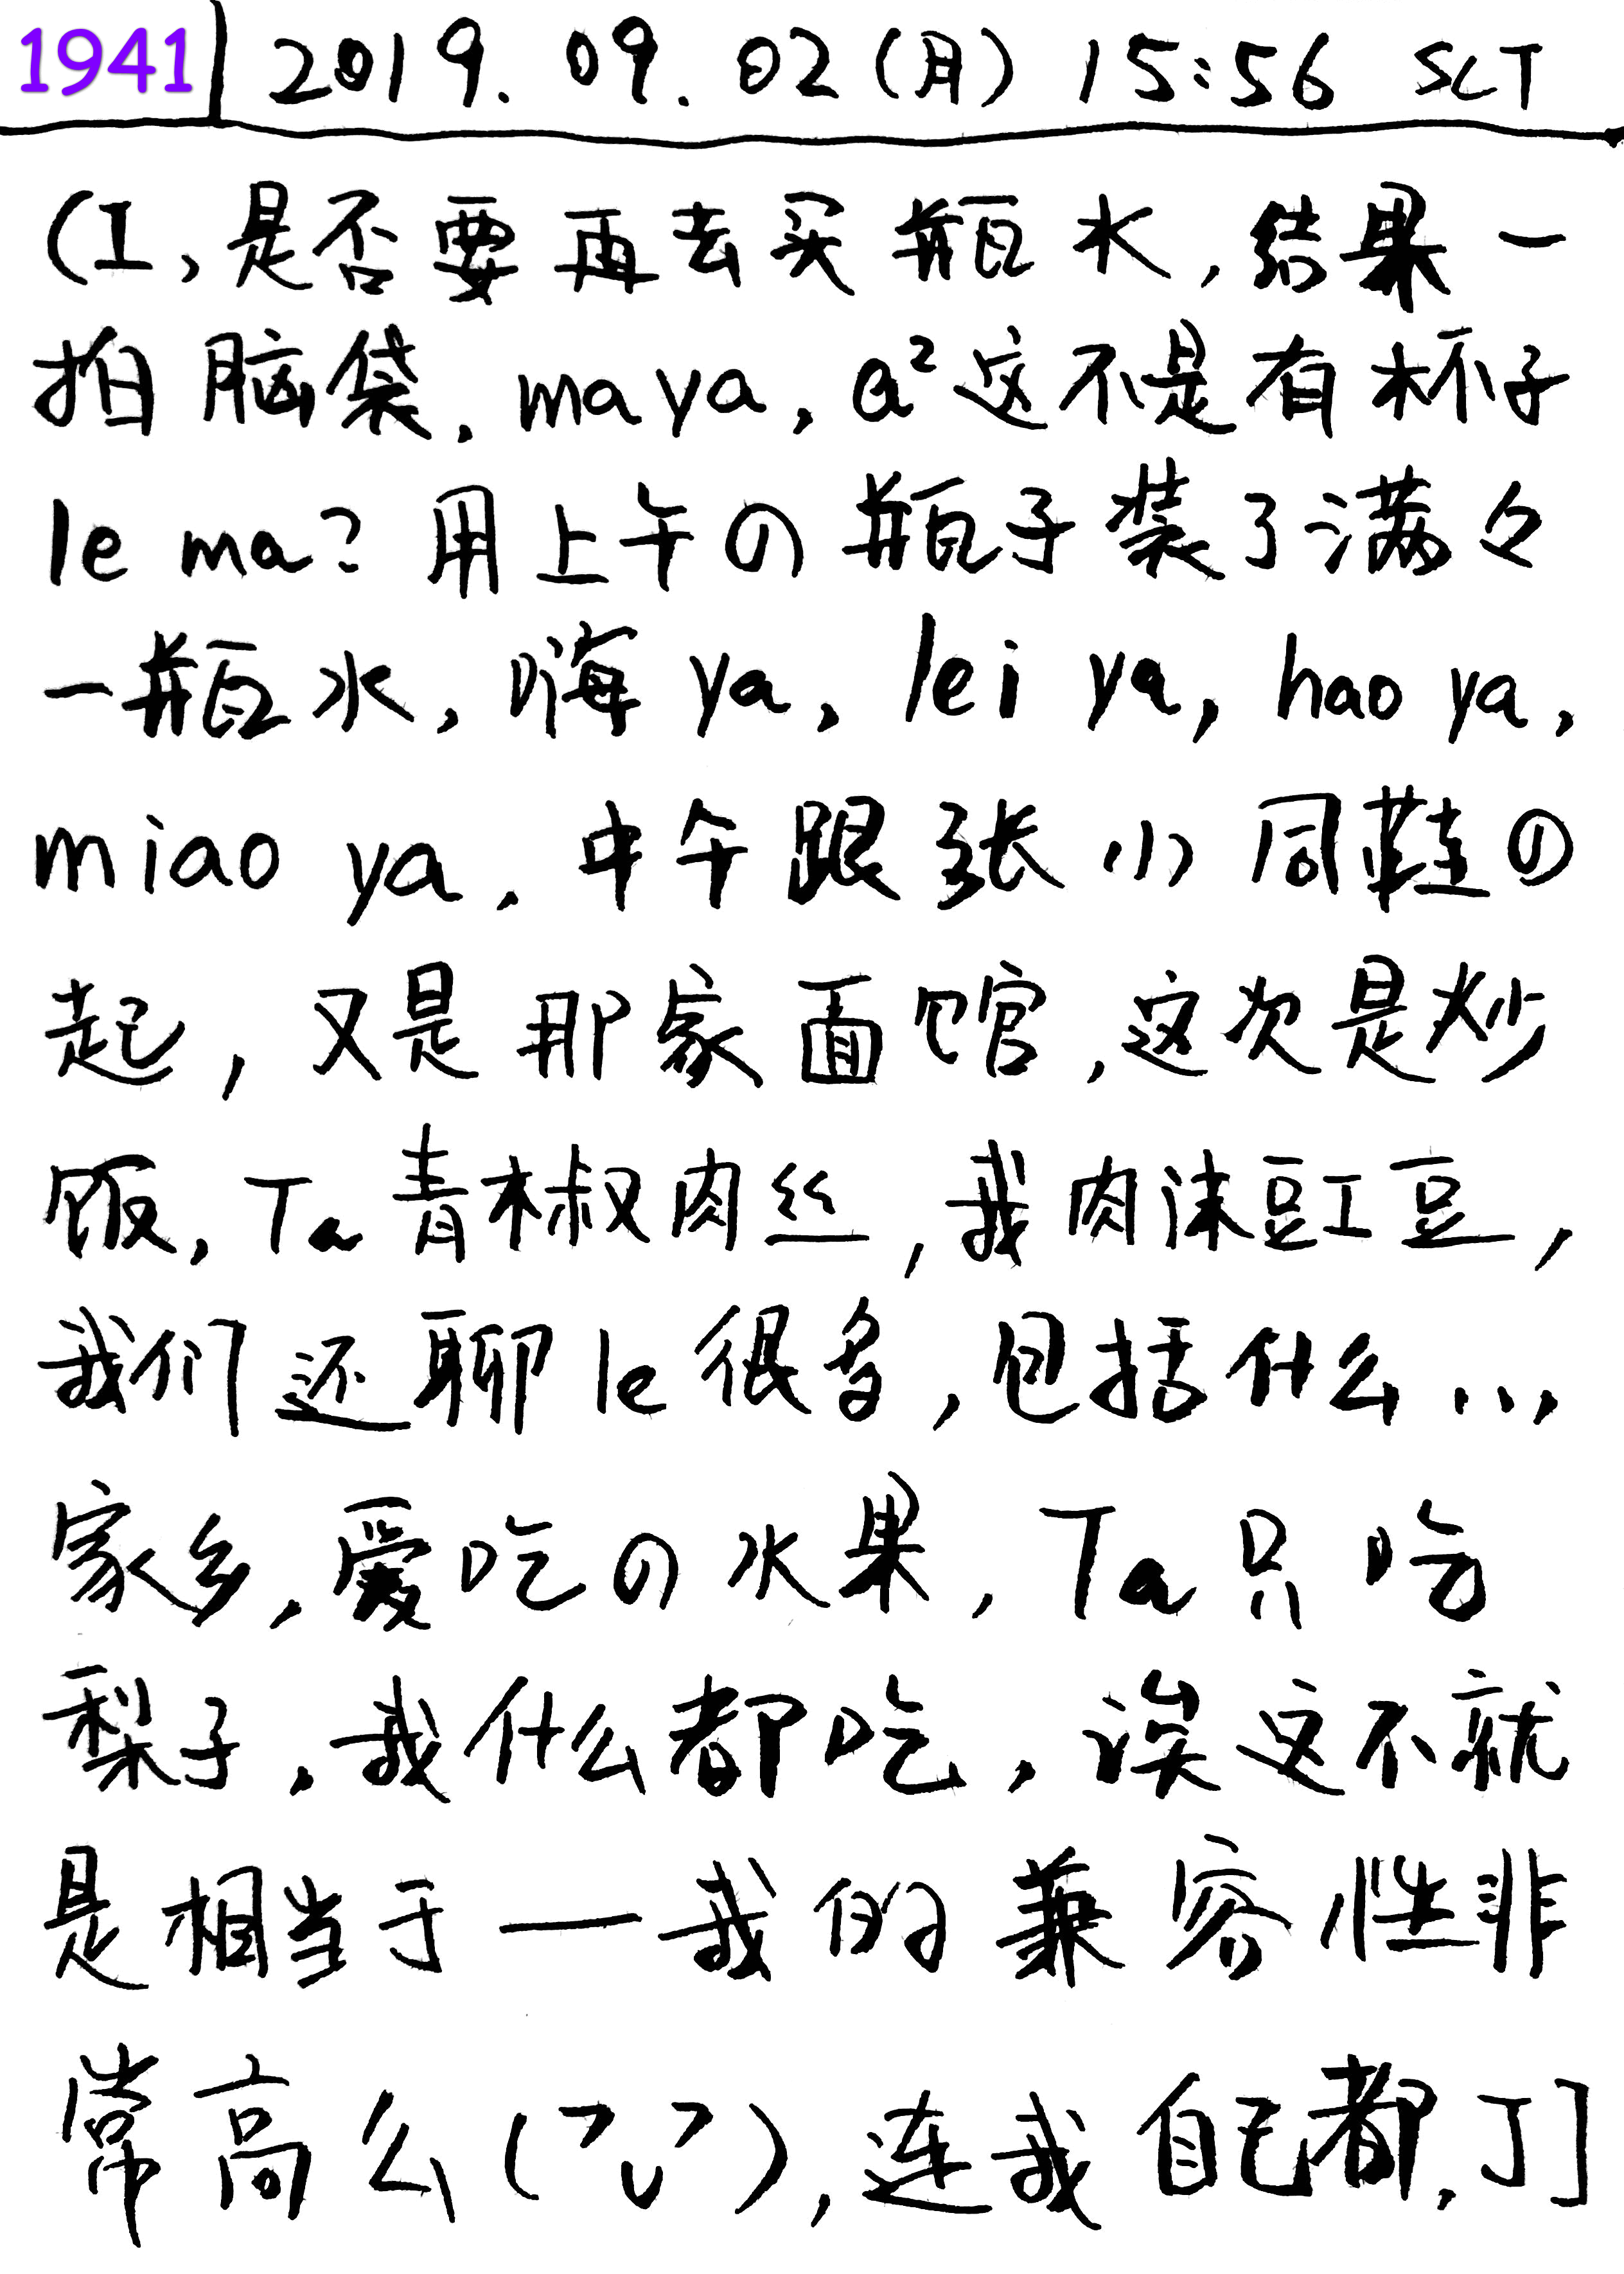 1941 2019.09.02(月) 15:56 SCT
(I,是否要再去买瓶水,结果一
拍脑袋,maya,a²这不是有杯子
le ma?用上午の瓶子装了满々
一瓶水,嗨ya,lei ya,hao ya,
miao ya.中午跟张小同鞋の
起,又是那家面馆,这次是炒
饭,Ta青椒肉丝,我肉沫豇豆,
我们还聊le很多,包括什么...,
家乡,爱吃の水果,Ta只吃
梨子,我什么都吃,诶这不就
是相当于一我的兼容性非
常高么(),连我自己都,J]